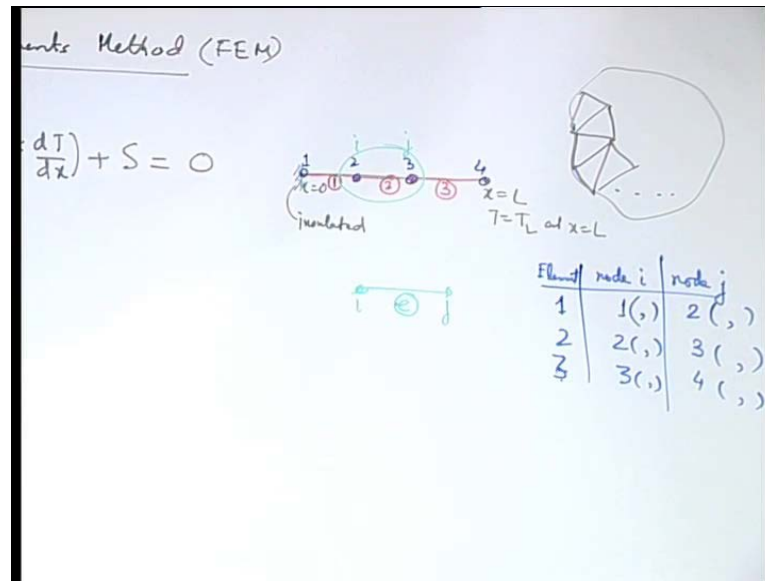 ents Method (FEM)
dT/dx) + S = 0
i j
1 2 3 4
x=0 1 2 3 x=L
insulated T=T_L at x=L
i e j
Element node i node j
1 1(,) 2(,)
2 2(,) 3(,)
3 3(,) 4(,)